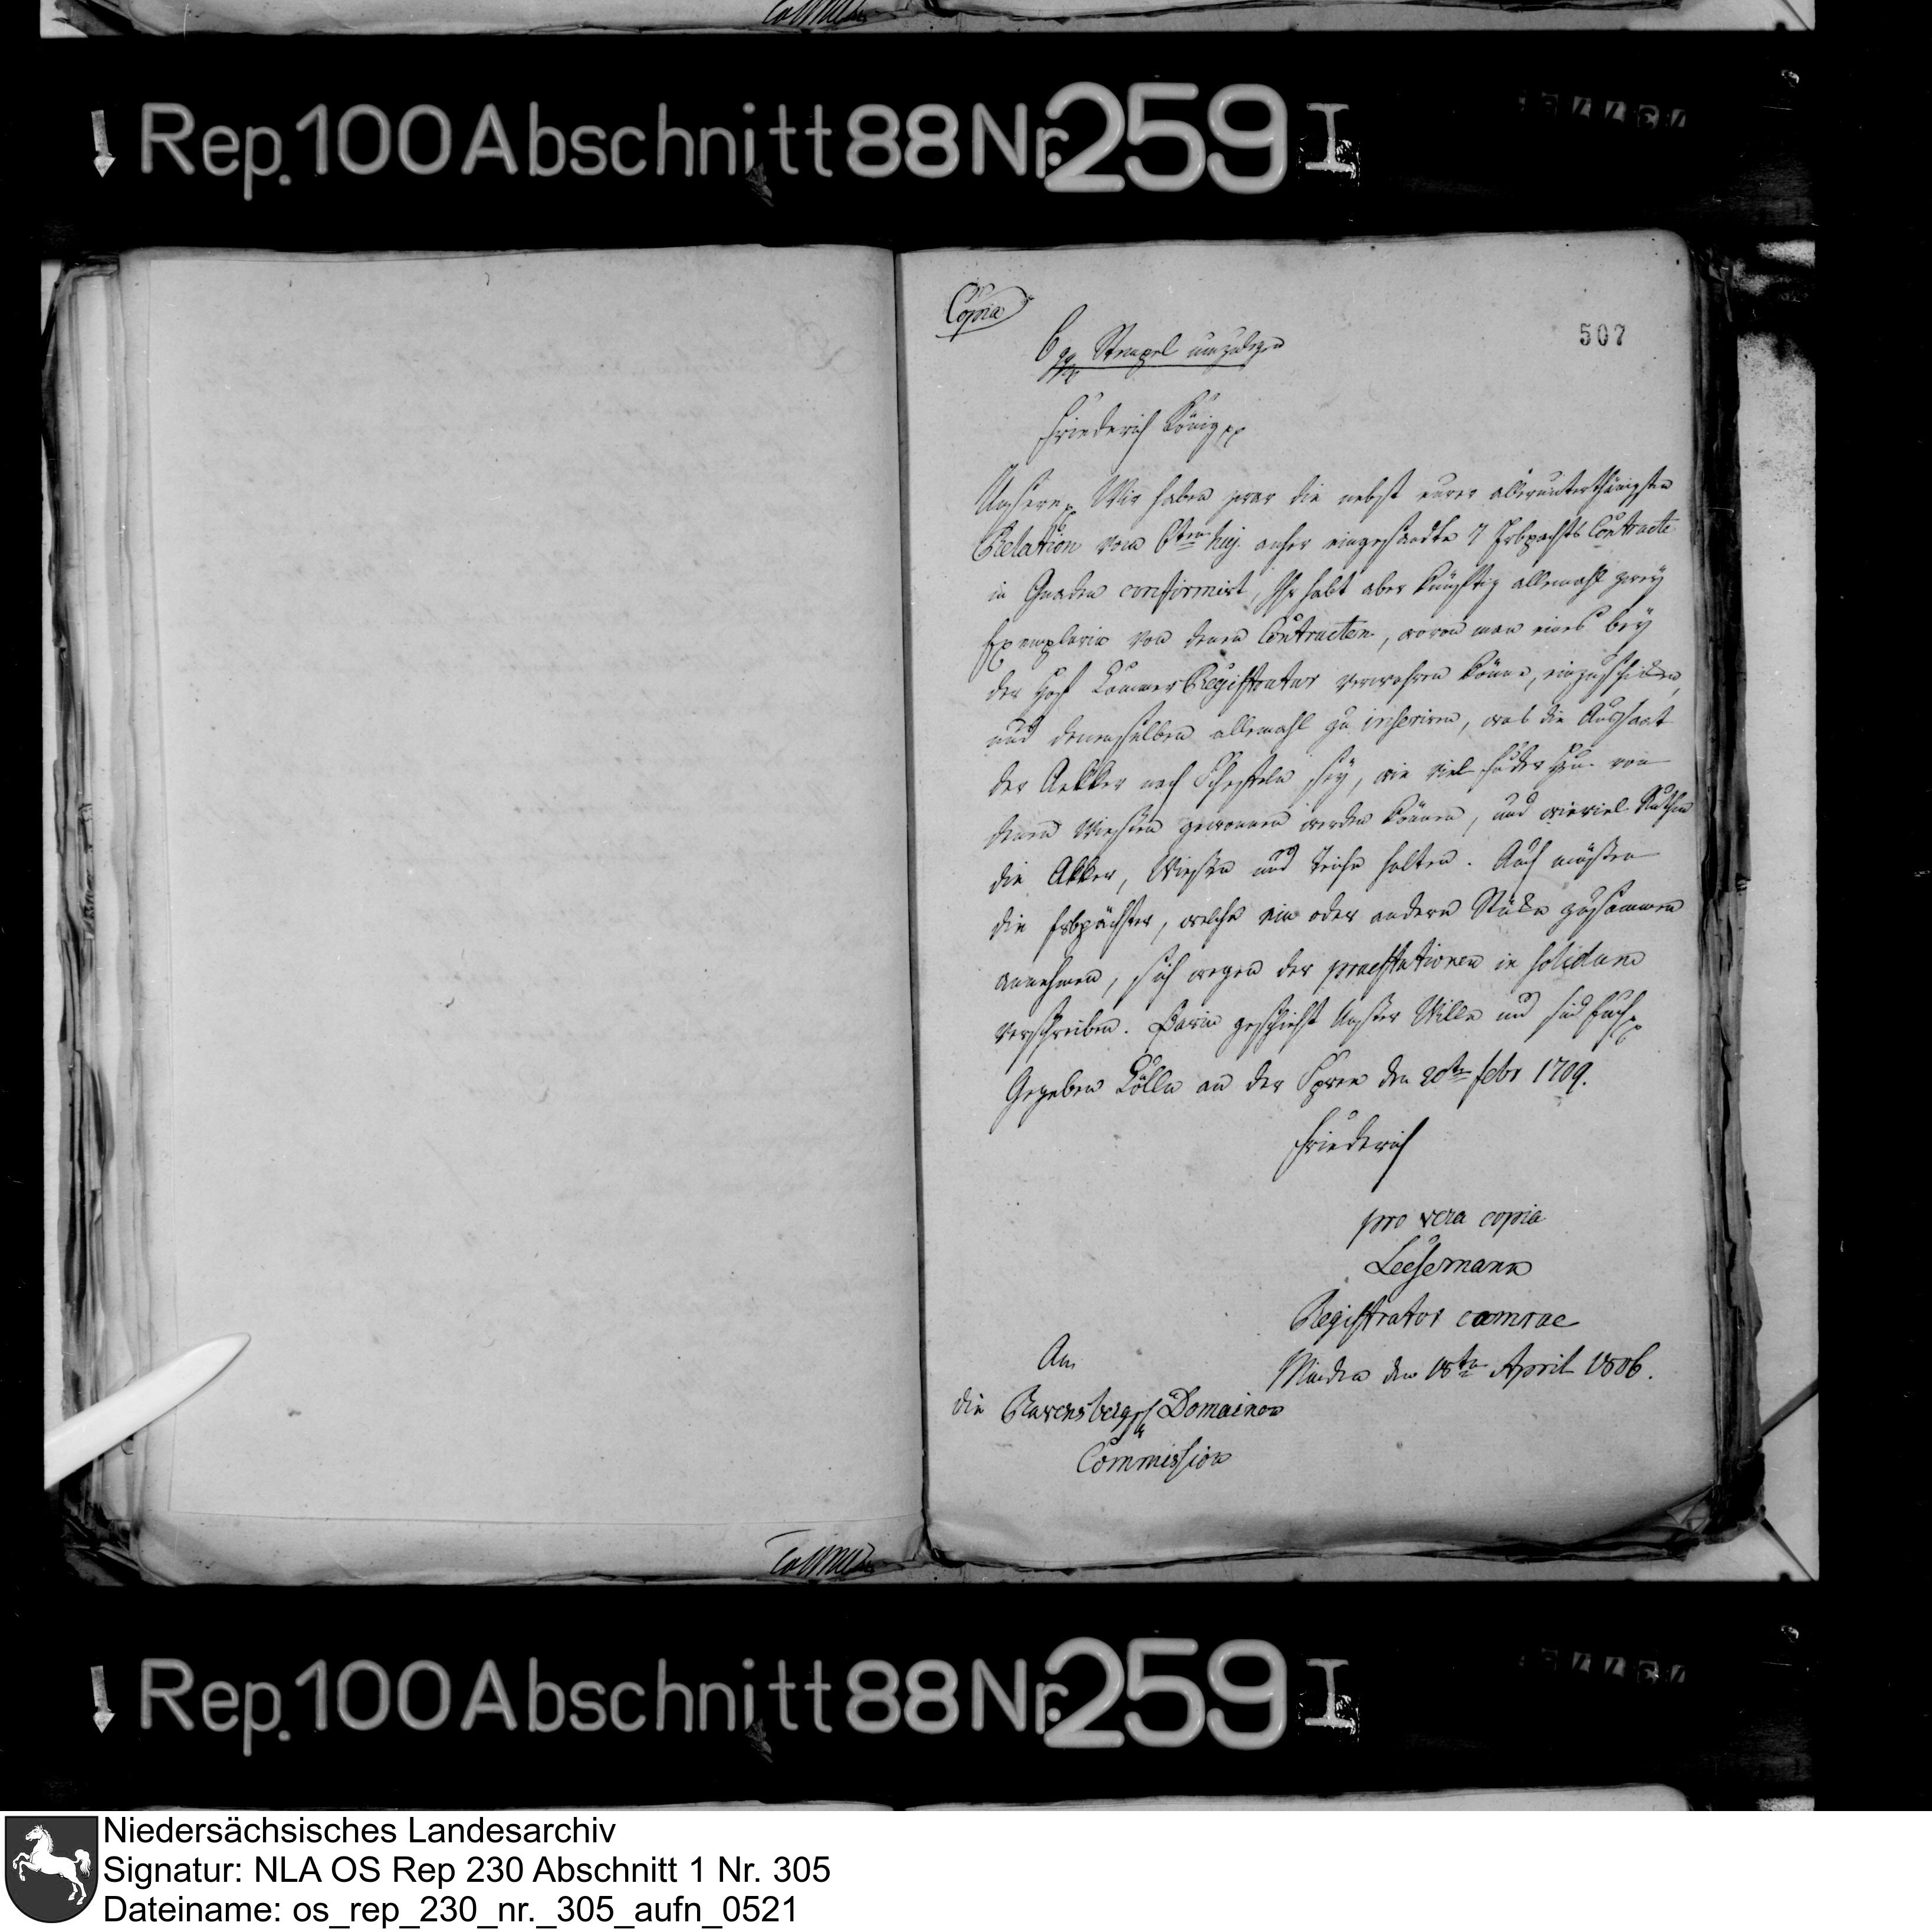 Rep. 100 Abschnitt 88 Nr. 259 I
507
Copia
6 ggr Stempel umzulegen
Friederich König pp
Unsern pp Wir haben zwar die nebst eurer allerunterthänigsten
Relation vom 6ten huj. anher eingesandte 7 Erbpachts Contracte
in Gnaden confirmirt, Ihr habt aber künftig allemahl zwey
Exemplaria von denen Contracten, wovon man eines bey
der Hof Cammer Registratur verwahren könne, einzuschicken,
und denenselben allemahl zu inseriren, was die Aussaat
der Aekker nach Scheffeln sey, wie viel Fuder Heu von
denen Wiesen gewonnen werden können, und wieviel Ruthen
die Akker, Wiesen und Teiche halten. Auch müssen
die Erbpächter, welche ein oder andere Stücke zusammen
annehmen, sich wegen der praestationen in solidum
verschreiben. Darin geschieht Unser Wille und sind Euch pp
Gegeben Cölln an der Spree den 20ten Febr 1709.
Friederich
pro vera copia
Leesemann
Registrator camrae
Minden den 18ten April 1806.
An
die Ravensbergsche Domainen
Commission
Rep. 100 Abschnitt 88 Nr. 259 I
Niedersächsisches Landesarchiv
Signatur: NLA OS Rep 230 Abschnitt 1 Nr. 305
Dateiname: os_rep_230_nr._305_aufn_0521